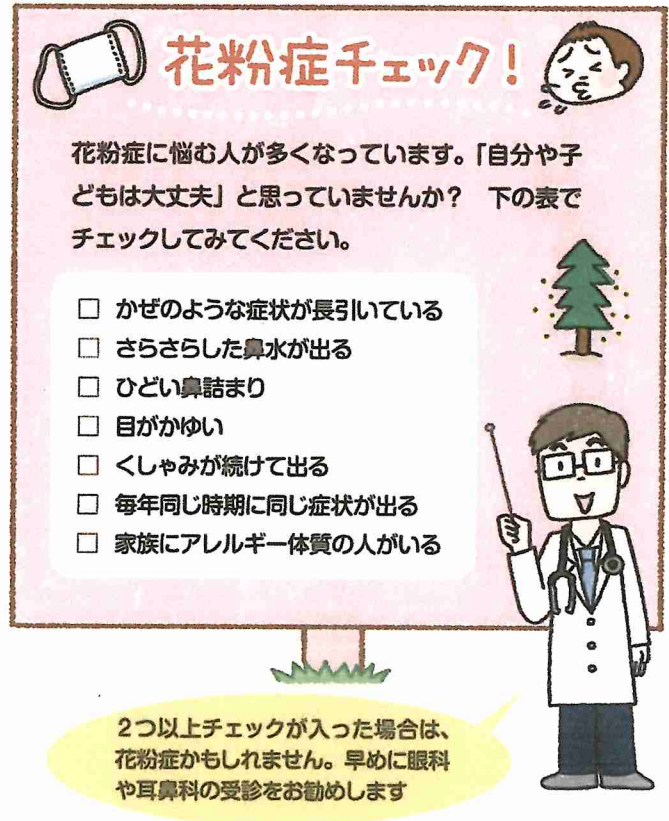 花粉症チェック!
花粉症に悩む人が多くなっています。「自分や子
どもは大丈夫」と思っていませんか?　下の表で
チェックしてみてください。
□ かぜのような症状が長引いている
□ さらさらした鼻水が出る
□ ひどい鼻詰まり
□ 目がかゆい
□ くしゃみが続けて出る
□ 毎年同じ時期に同じ症状が出る
□ 家族にアレルギー体質の人がいる
2つ以上チェックが入った場合は、
花粉症かもしれません。早めに眼科
や耳鼻科の受診をお勧めします